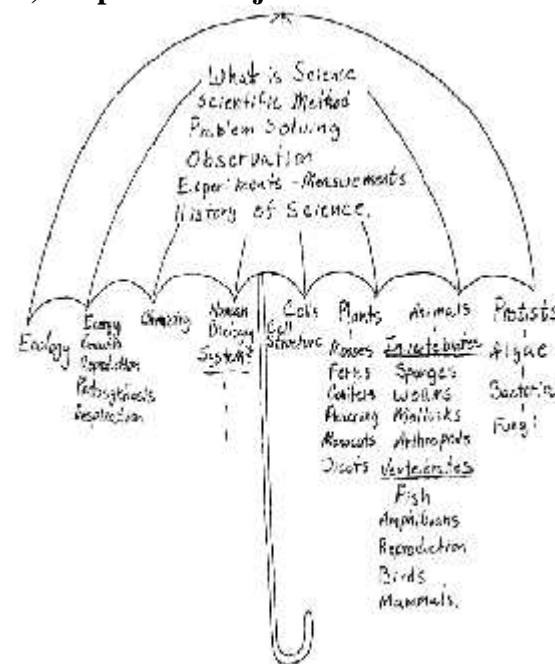 What is Science
Scientific Method
Problem Solving
Observation
Experiments - Measurements
History of Science.
Ecology
Energy
Growth
Reproduction
Photosynthesis
Respiration
Chemistry
Human
Biology
Systems
Cells
Cell
Structure
Plants
Mosses
Ferns
Conifers
Flowering
Monocots
Dicots
Animals
Invertebrates
Sponges
Worms
Mollusks
Arthropods
Vertebrates
Fish
Amphibians
Reproduction
Birds
Mammals.
Protists
Algae
Bacteria
Fungi